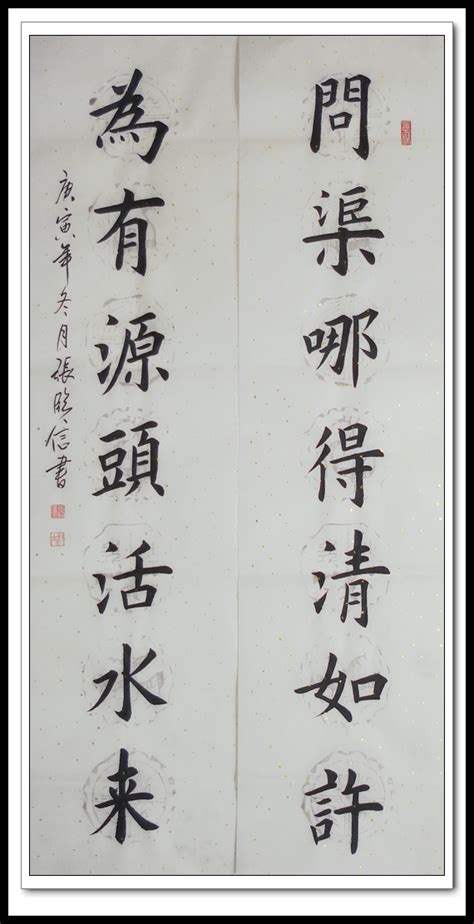 問渠哪得清如許
為有源頭活水来
庚寅年冬月張臨信書